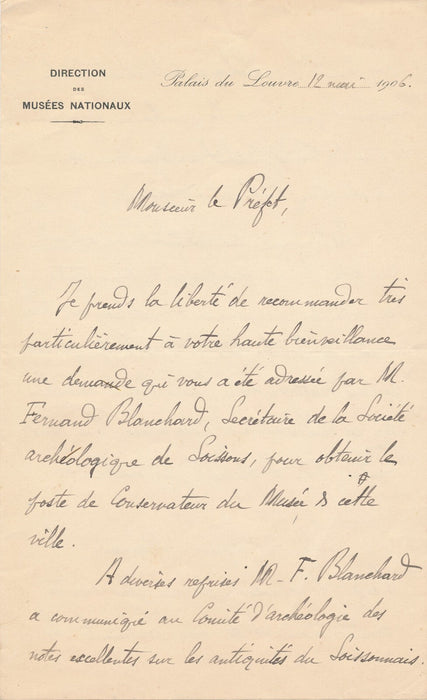 DIRECTION
DES
MUSÉES NATIONAUX
Palais du Louvre 12 mai 1906.
Monsieur le Préfet,
Je prends la liberté de recommander très
particulièrement à votre haute bienveillance
une demande qui vous a été adressée par M.
Fernand Blanchard, Secrétaire de la Société
archéologique de Soissons, pour obtenir le
poste de Conservateur du Musée de cette
ville.
A diverses reprises M. F. Blanchard
a communiqué au Comité d'archéologie des
notes excellentes sur les antiquités du Soissonnais.